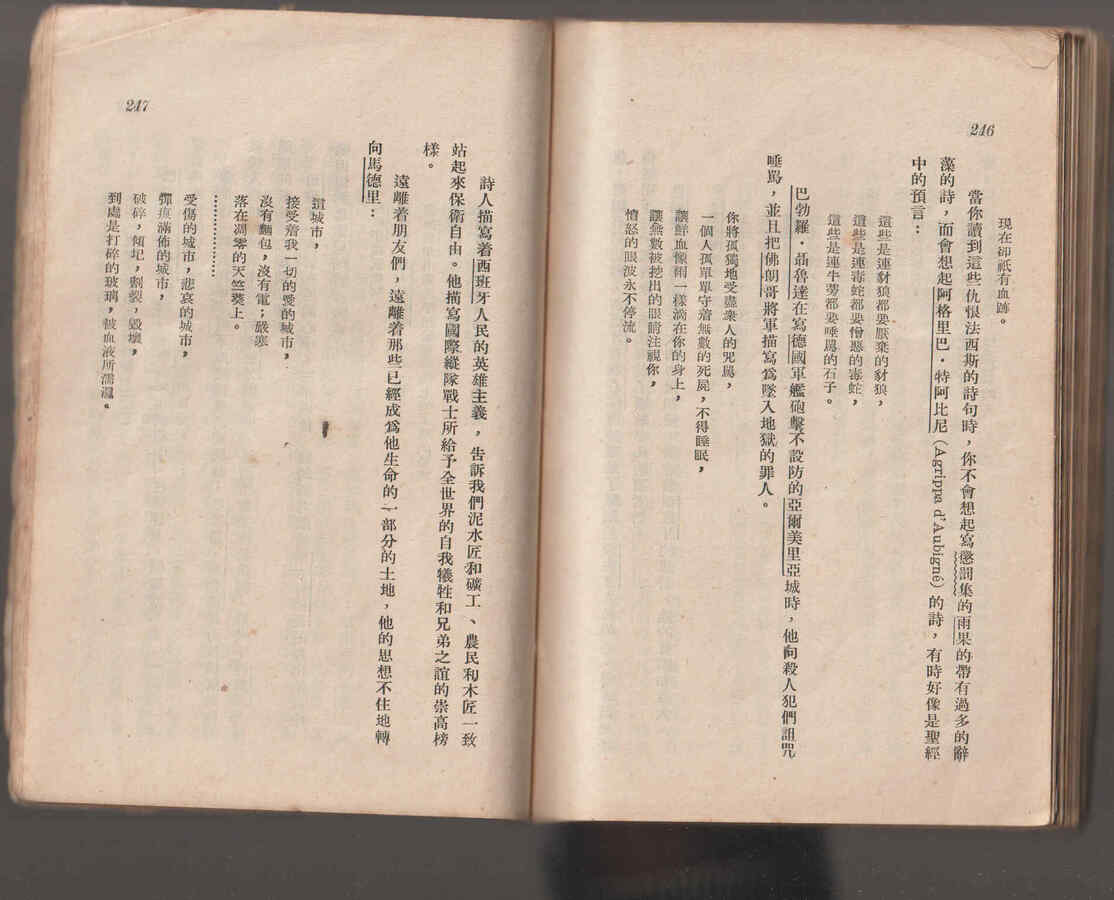 246
現在卻祇有血跡。
當你讀到這些仇恨法西斯的詩句時，你不會想起寫懲罰集的雨果的帶有過多的辭
藻的詩，而會想起阿格里巴·特阿比尼（Agrippa d'Aubigné）的詩，有時好像是聖經
中的預言：
這些是連豺狼都要厭棄的豺狼，
這些是連毒蛇都要憎惡的毒蛇，
這些是連牛蒡都要唾罵的石子。
巴勃羅·聶魯達在寫德國軍艦砲擊不設防的亞爾美里亞城時，他向殺人犯們詛咒
唾罵，並且把佛朗哥將軍描寫爲墜入地獄的罪人。
你將孤獨地受盡衆人的咒罵，
一個人孤單單守着無數的死屍，不得睡眠，
讓鮮血像雨一樣滴在你的身上，
讓無數被挖出的眼睛注視你，
憤怒的眼波永不停流。
247
詩人描寫着西班牙人民的英雄主義，告訴我們泥水匠和礦工、農民和木匠一致
站起來保衛自由。他描寫國際縱隊戰士所給予全世界的自我犧牲和兄弟之誼的崇高榜
樣。
遠離着朋友們，遠離着那些已經成爲他生命的一部分的土地，他的思想不住地轉
向馬德里：
這城市，
接受着我一切的愛的城市，
沒有麵包，沒有電；嚴寒
落在凋零的天竺葵上。
………………
受傷的城市，悲哀的城市，
彈痕滿佈的城市，
破碎，傾圮，割裂，毀壞，
到處是打碎的玻璃，被血液所濡濕。